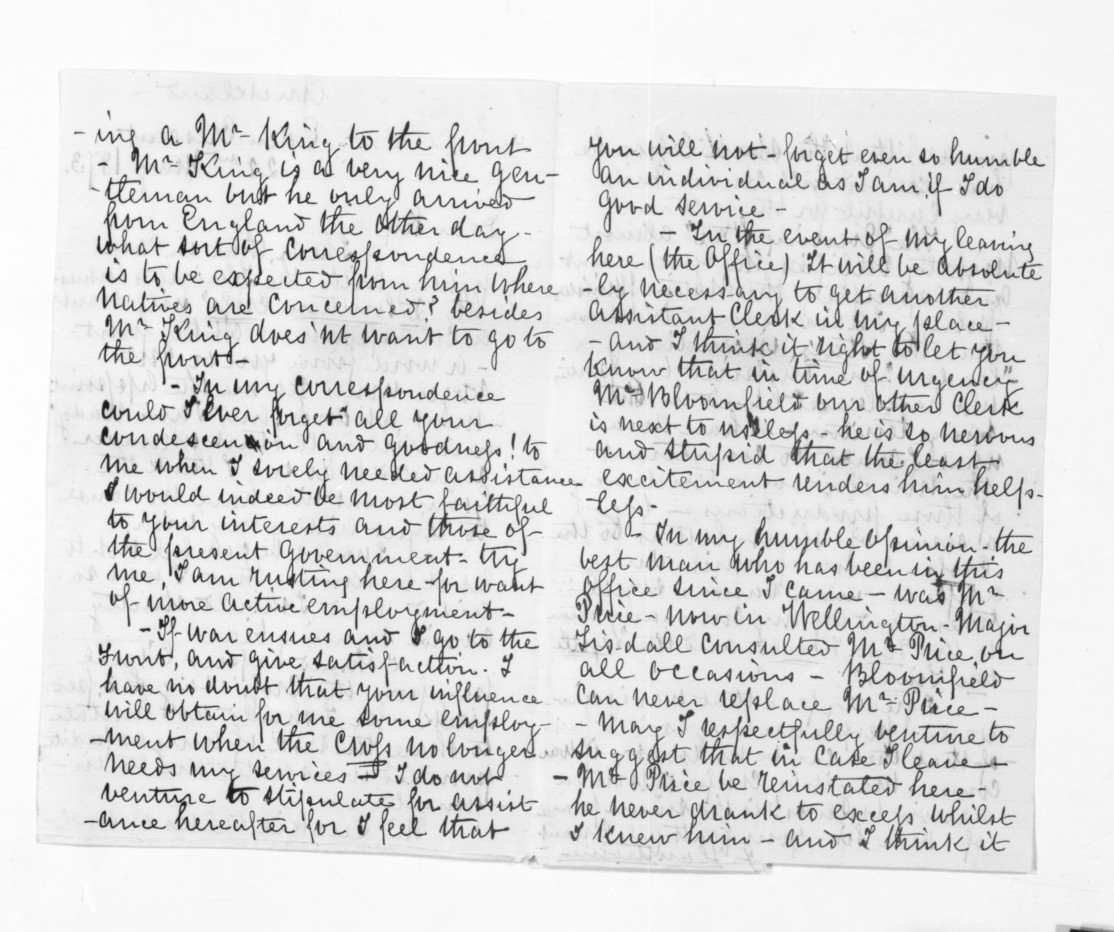 -ing a Mr King to the front
- Mr King is a very nice gen-
-tleman but he only arrived
from England the other day -
what sort of correspondence
is to be expected from him where
Natives are concerned? besides
Mr King does'nt want to go to
the front -
- In my correspondence
could I ever forget all your
condescension and goodness! to
me when I sorely needed assistance
I would indeed be most faithful
to your interests and those of
the present Government - try
me, I am rusting here - for want
of more active employment -
- If war ensues and I go to the
Front, and give satisfaction. I
have no doubt that your influence
will obtain for me some employ-
-ment when the Cross no longer
needs my services - I do not
venture to stipulate for assist
-ance hereafter for I feel that
you will not - forget even so humble
an individual as I am if I do
good service -
In the event of my leaving
here (the Office) It will be absolute
-ly necessary to get another
Assistant Clerk in my place -
- and I think it right to let you
know that in time of "urgency"
Mr Bloomfield our other Clerk
is next to useless - he is so nervous
and stupid that the least
excitement renders him help-
-less -
- In my humble opinion - the
best man who has been in this
office since I came - was Mr
Price - now in Wellington - Major
Tisdall consulted Mr Price on
all occasions - Bloomfield
can never replace Mr Price -
- May I respectfully venture to
suggest that in case I leave -
- Mr Price be reinstated here -
he never drank to excess whilst
I knew him - and I think it